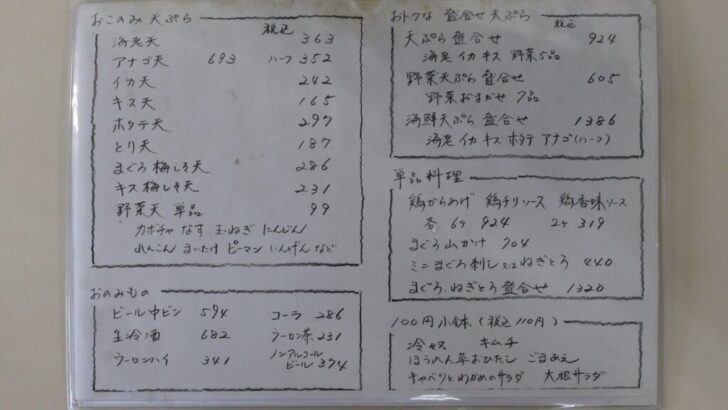 おこのみ 天ぷら
税込
海老天 363
アナゴ天 693 ハーフ 352
イカ天 242
キス天 165
ホタテ天 297
とり天 187
まぐろ梅しそ天 286
キス梅しそ天 231
野菜天 単品 99
カボチャ なす 玉ねぎ にんじん
れんこん まいたけ ピーマン いんげん など
おのみもの
ビール中ビン 594 コーラ 286
生冷酒 682 ウーロン茶 231
ウーロンハイ 341 ノンアルコールビール 374
おトクな 盛合せ 天ぷら
税込
天ぷら 盛合せ 924
海老 イカ キス 野菜5品
野菜天ぷら 盛合せ 605
野菜おまかせ 7品
海鮮天ぷら 盛合せ 1386
海老 イカ キス ホタテ アナゴ(ハーフ)
単品料理
鶏からあげ 鶏チリソース 鶏香味ソース
各 6ケ 924 2ケ 319
まぐろ山かけ 704
ミニまぐろ刺し又はねぎとろ 440
まぐろ、ねぎとろ 盛合せ 1320
100円小鉢 (税込110円)
冷奴 キムチ
ほうれん草おひたし ごまあえ
キャベツとわかめのサラダ 大根サラダ